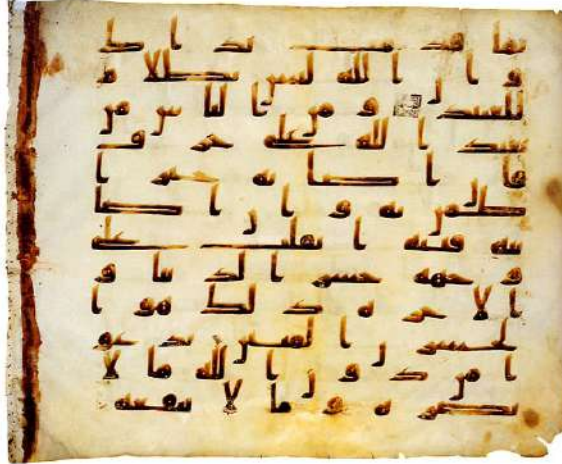 بما قدمت يداك
وان الله ليس بظلام
للعبيد ومن الناس من
يعبد الله على حرف
فان اصابه خير ا
طمن به وان اصا
بته فتنه انقلب على
وجهه خسر الدنيا و
الاخره ذلك هو ا
لخسرن المبين يدعو
ا من دون الله ما لا
يضره وما لا ينفعه